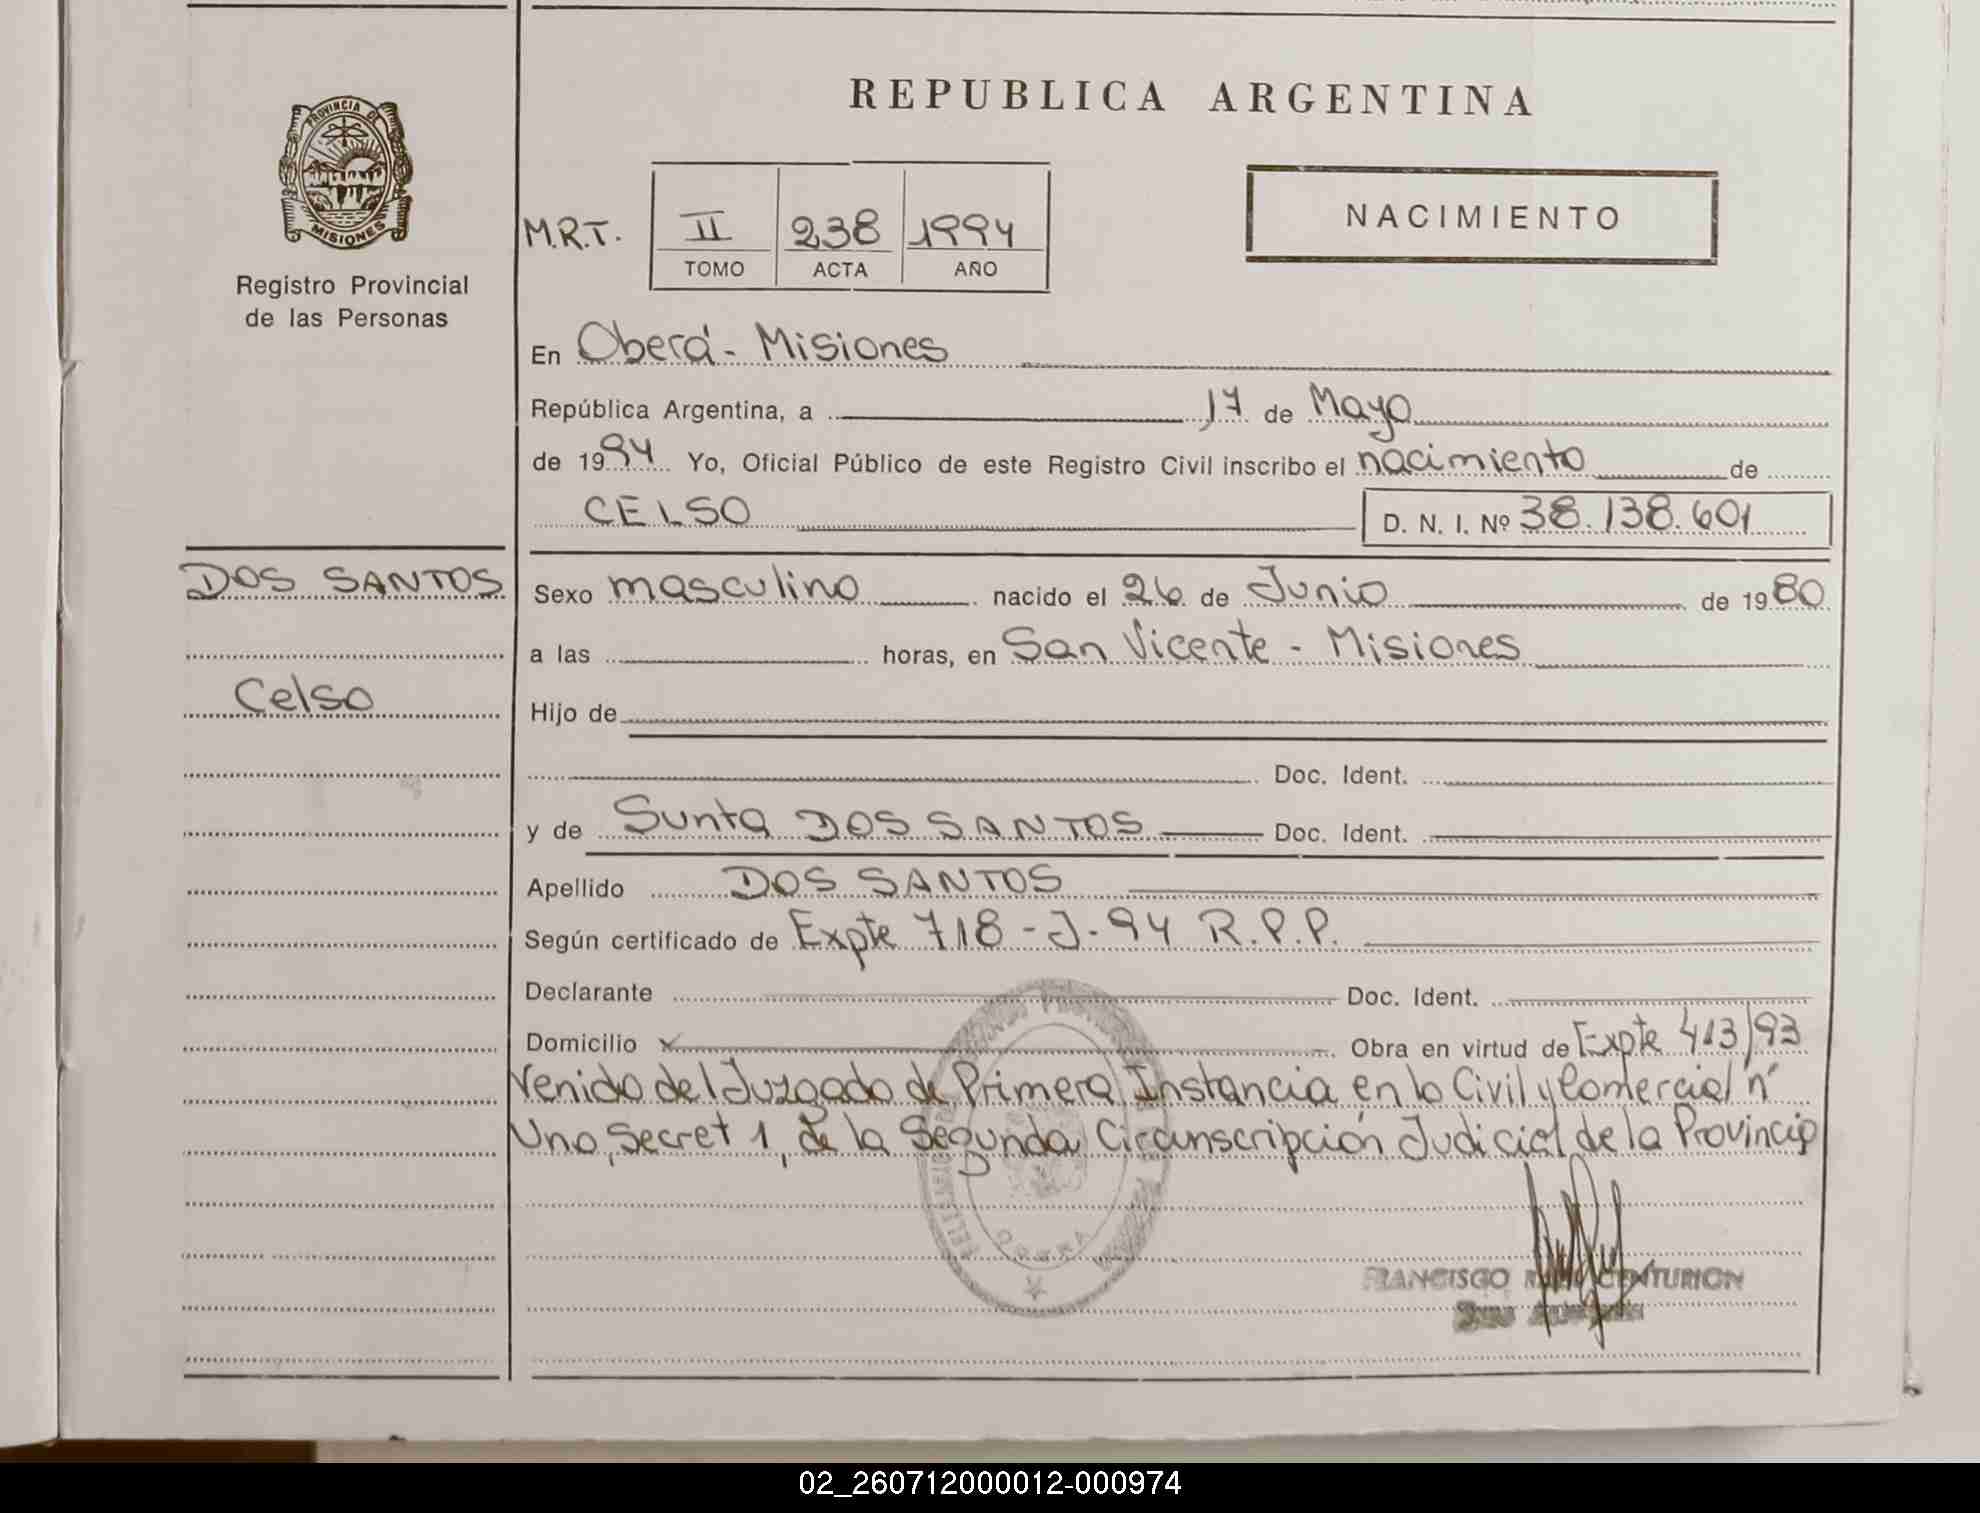 REPUBLICA ARGENTINA
PROVINCIA DE
MISIONES
Registro Provincial
de las Personas
M.R.T.
II 238 1994
TOMO ACTA AÑO
NACIMIENTO
En Oberá - Misiones
República Argentina, a 17 de Mayo
de 1994 Yo, Oficial Público de este Registro Civil inscribo el nacimiento de
CELSO D. N. I. Nº 38.138.601
DOS SANTOS
Celso
Sexo masculino nacido el 26 de Junio de 1980
a las horas, en San Vicente - Misiones
Hijo de
Doc. Ident.
y de Sunta DOS SANTOS Doc. Ident.
Apellido DOS SANTOS
Según certificado de Expte 718-J-94 R.P.P.
Declarante Doc. Ident.
Domicilio x Obra en virtud de Expte 413/93
Venido del Juzgado de Primera Instancia en lo Civil y Comercial nº
Uno, Secret 1, de la Segunda Circunscripción Judicial de la Provincia
OBERA
FRANCISCO CENTURION
02_260712000012-000974